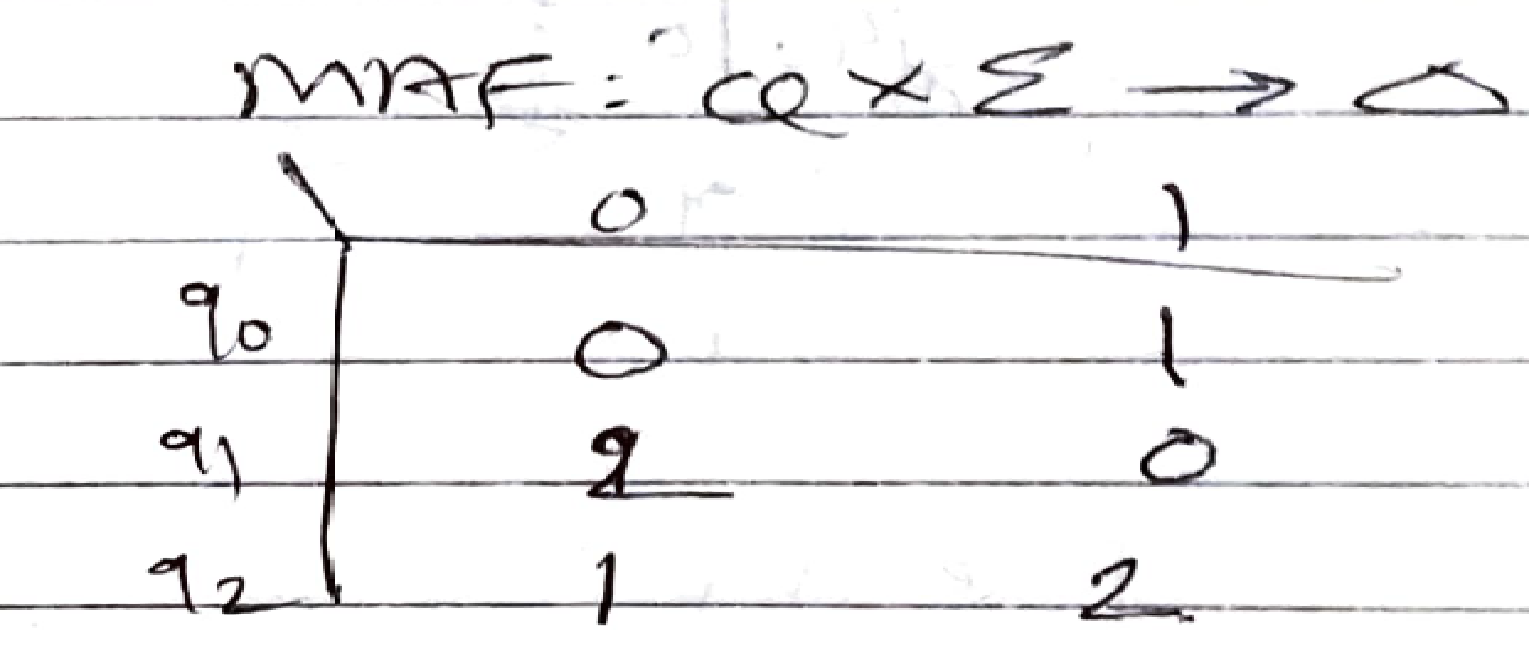 MAF: Q × Σ → Δ
0 1
q0 0 1
q1 2 0
q2 1 2